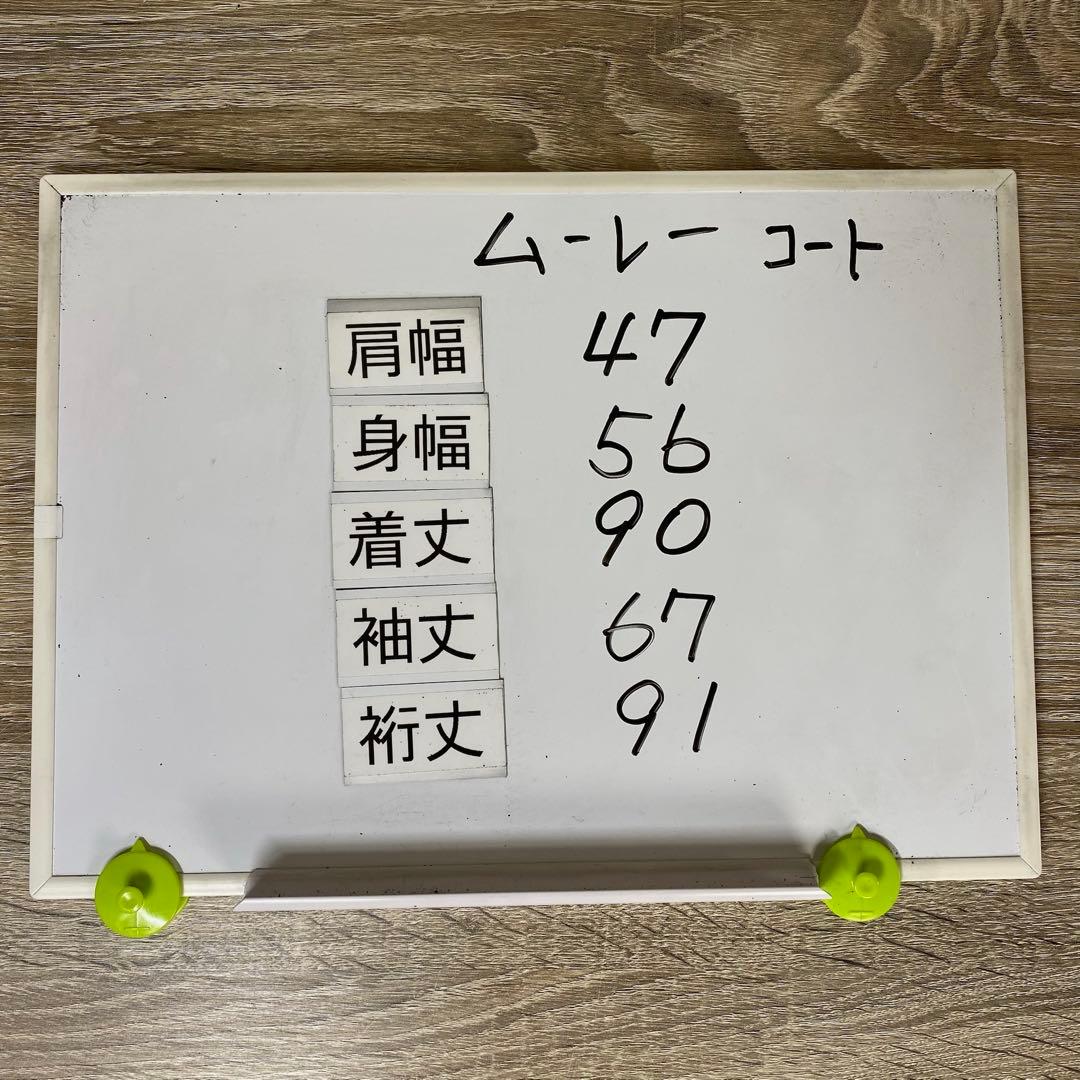 ムーレー コート
肩幅 47
身幅 56
着丈 90
袖丈 67
裄丈 91